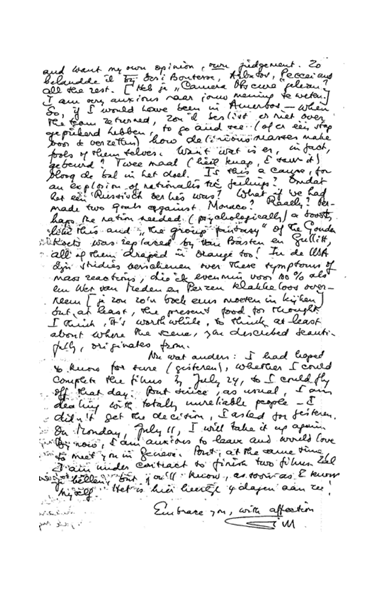 and want my own opinion, own judgement. Zo
belandde ik bij Desi Bouterse, Arbatov, Peccei and
all the rest. [Heb je "Camera Obscura" gelezen?
I am very anxious naar jouw mening te weten.]
So, if I would have been in Amersfoort — when
the team returned, zou ik beslist er niet over
gepiekerd hebben, to go and see (of er één stap
voor te verzetten) how delirious masses make
fools of themselves. Want wat is er, in fact,
gebeurd? Twee maal (heel knap, I saw it)
vloog de bal in het doel. Is this a cause, for
an explosion of nationalistic feelings? Omdat
het een Russisch verlies was? What if we had
made two goals against Monaco? Really? Per-
haps, the nation needed (psychologically) a boost,
like this and "the group fantasy" of the Gouden
Koets was replaced by Van Basten en Gullit,
all of them draped in orange too! In de USA
zijn studies verschenen over these symptoms of
mass reactions, die ik evenmin voor 100% als
een Wet van Meden en Perzen klakkeloos over-
neem [je zou zo'n boek eens moeten in kijken]
but, at least, the present food for thought
I think, it's worthwhile, to think at least
about where the scene, you described beauti-
fully, originates from.
Nu wat anders: I had hoped
to know for sure (gisteren), whether I could
complete the films by July 24, so I could fly
off that day. But since, as usual, I am
dealing with totally unreliable people — I
didn't get the decision, I asked for gisteren.
On Monday, July 11, I will take it up again
By now, I am anxious to leave and would love
to meet you in Geneva. But, at the same time
I am under contract to finish two films. Zal
je bellen, but, you'll know, as soon as I know
myself. Het is hier heerlijk 4 dagen aan zee!
Embrace you, with affection